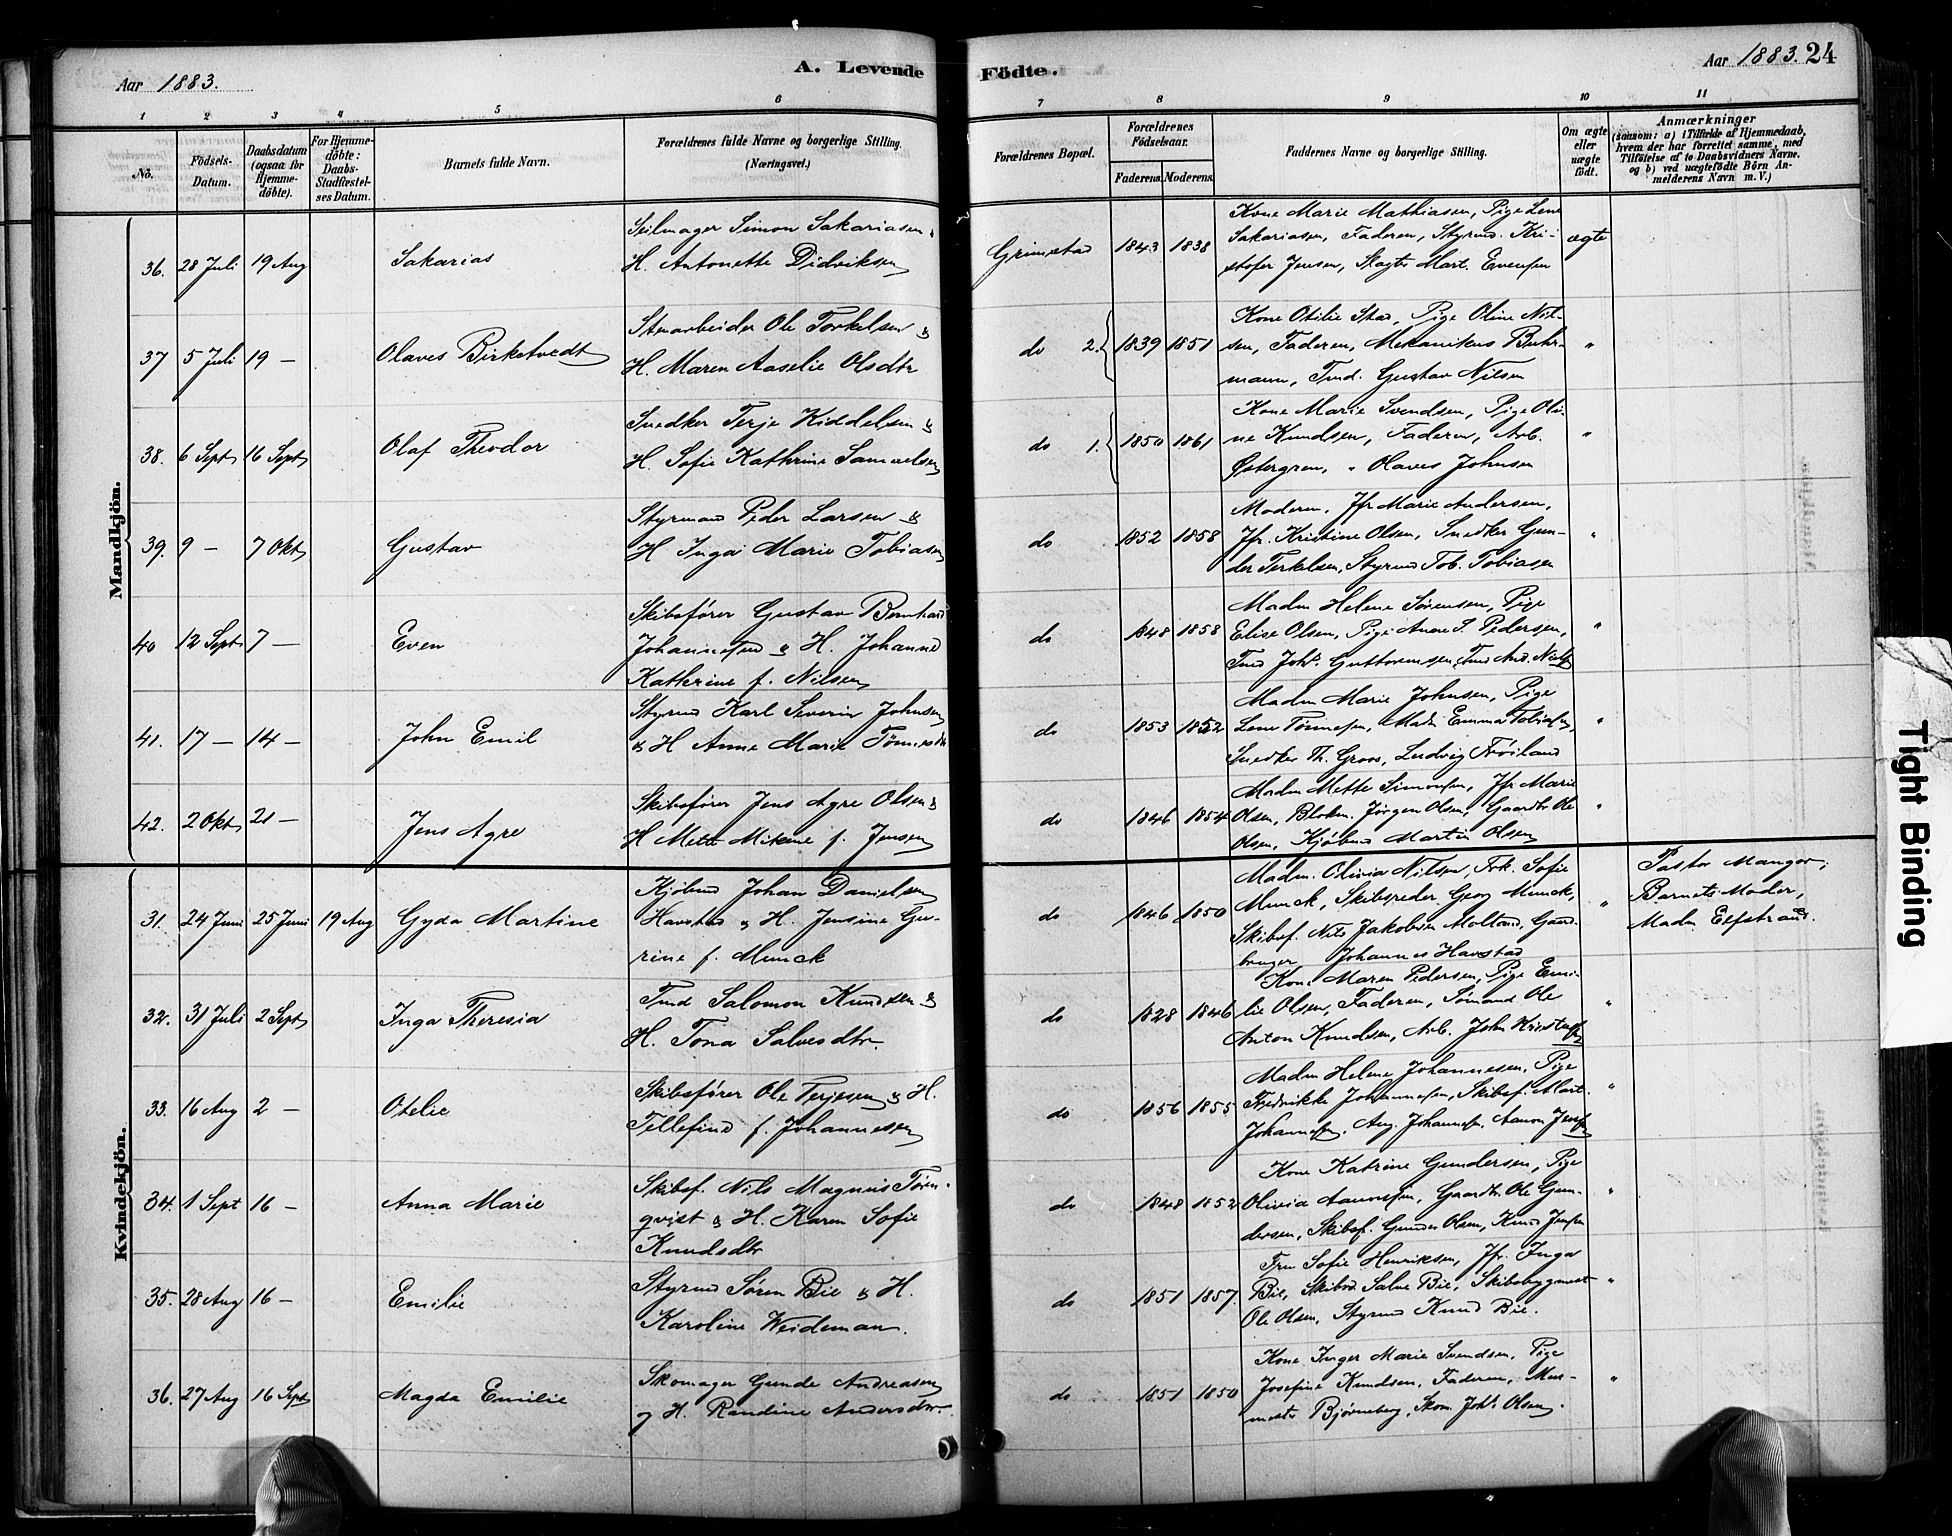 Aar 1883.
A. Levende
Födte.
Aar 1883. 24
1 2 3 4 5 6 7 8 9 10 11
No.
Födsels-Datum.
Daabsdatum (ogsaa for Hjemme-döbte).
For Hjemme-döbte: Daabs-Stadfæstel-ses Datum.
Barnets fulde Navn.
Forældrenes fulde Navne og borgerlige Stilling. (Næringsvei.)
Forældrenes Bopæl.
Forældrenes Födselsaar.
Faderens. Moderens.
Faddernes Navne og borgerlige Stilling.
Om ægte eller uægte födt.
Anmærkninger
(saasom: a) i Tilfælde af Hjemmedaab,
hvem der har forrettet samme, med
Tilföielse af to Daabsvidners Navne.
og b) ved uægtefödte Börn An-
melderens Navn m. V.)
Mandkjön.
36. 28 Juli 19 Aug Sakarias
Seilmager Simon Sakariasen &
H. Antonette Didriksen
Grimstad 1843 1838
Kone Marie Mathiasen, Pige Lene
Sakariasen, Faderen, Styrmd. Kri-
stofer Jensen, Slagter Mart. Evensen
ægte
37 5 Juli 19 — Olaves Birketvedt
Stenarbeider Ole Torkelsen &
H. Maren Aaselie Olsdtr
do 2. 1839 1851
Kone Otilie Stad, Pige Oline Nil-
sen, Faderen, Mekanikus Buhr-
mann, Tmd. Gustav Nilsen
"
38. 6 Sept 16 Sept Olaf Theodor
Snedker Terje Kiddelsen &
H. Sofie Kathrine Samuelsen
do 1. 1850 1861
Kone Marie Svendsen, Pige Oli-
ne Knudsen, Faderen, Arb.
Østergren, " Olaves Johnsen
"
39. 9 — 7 Okt Gustav
Styrmand Peder Larsen &
H Inga Marie Tobiasen
do 1852 1858
Moderen, Jfr Marie Andersen,
Jfr. Kristine Olsen, Snedker Gun-
der Terkelsen, Styrmd Tob. Tobiasen
"
40 12 Sept 7 — Even
Skibsfører Gustav Bernhard
Johannesen & H. Johanne
Kathrine f. Nilsen
do 1848 1858
Madm Helene Sørensen, Pige
Elise Olsen, Pige Anne S. Pedersen,
Tmd Johs. Guttormsen, Tmd And. Niels
"
41. 17 — 14 — John Emil
Styrmd Karl Severin Johnsen
& H Anne Marie Tønnesdtr
do 1853 1852
Madm Marie Johnsen, Pige
Lene Tønnesen, Madm Emma Tobiasen,
Snedker Th. Groos, Ludvig Frøiland
"
42. 2 Okt 21 — Jens Agre
Skibsfører Jens Agre Olsen &
H Mette Mikene f. Jensen
do 1846 1854
Madm Mette Simonsen, Jfr Marie
Olsen, Blokm. Jørgen Olsen, Gaardbr Ole
Olsen, Kjøbmd Martin Olsen
"
Kvindekjön.
31. 24 Juni 25 Juni 19 Aug Gyda Martine
Kjøbmd Johan Danielsen
Havstad & H. Jensine Gu-
rine f. Munck
do 1846 1850
Madm. Olivia Nilsen, Frk. Sofie
Munck, Skibsreder Georg Munck,
Skibsf. Nils Jakobsen Molland, Gaard-
bruger Johannes Havstad
"
Pastor Mangor,
Barnets Moder,
Madm Elfstrand.
32. 31 Juli 2 Sept Inga Theresia
Tmd Salomon Knudsen &
H. Tona Salvesdtr.
do 1828 1846
Kone Maren Pedersen, Pige Emi-
lie Olsen, Faderen, Sømand Ole
Anton Knudsen, Arb. John Kristens
"
33. 16 Aug 2 — Otelie
Skibsfører Ole Terjesen & H.
Tellefine f. Johannesen
do 1856 1855
Madm Helene Johannesen, Pige
Fredrikke Johannesen, Skibsf. Mart.
Johannesen. Aug. Johannesen. Aanon Jensen
"
34. 1 Sept 16 — Anna Marie
Skibsf. Nils Magnus Törn-
qvist & H. Karen Sofie
Knudsdtr
do 1848 1852
Kone Katrine Gundersen, Pige
Olivia Aanonsen, Gaardbr. Ole Gun-
dersen, Skibsf. Gunder Olsen, Knud Jensen
"
35. 28 Aug 16 — Emilie
Styrmd Søren Bie & H.
Karoline Weideman.
do 1851 1857.
Fru Sofie Henriksen, Jfr. Inga
Bie, Skibsrd Salve Bie, Skibsbygmest
Ole Olsen, Styrmd Knud Bie.
"
36. 27 Aug 16 Sept Magda Emilie
Skomager Gunde Andreasen
og H. Randine Andersdtr.
do 1851 1850
Kone Inger Marie Svendsen, Pige
Josefine Knudsen, Faderen, Mur-
mester Bjørneberg, Skom. Johs. Olsen.
"
Tight Binding